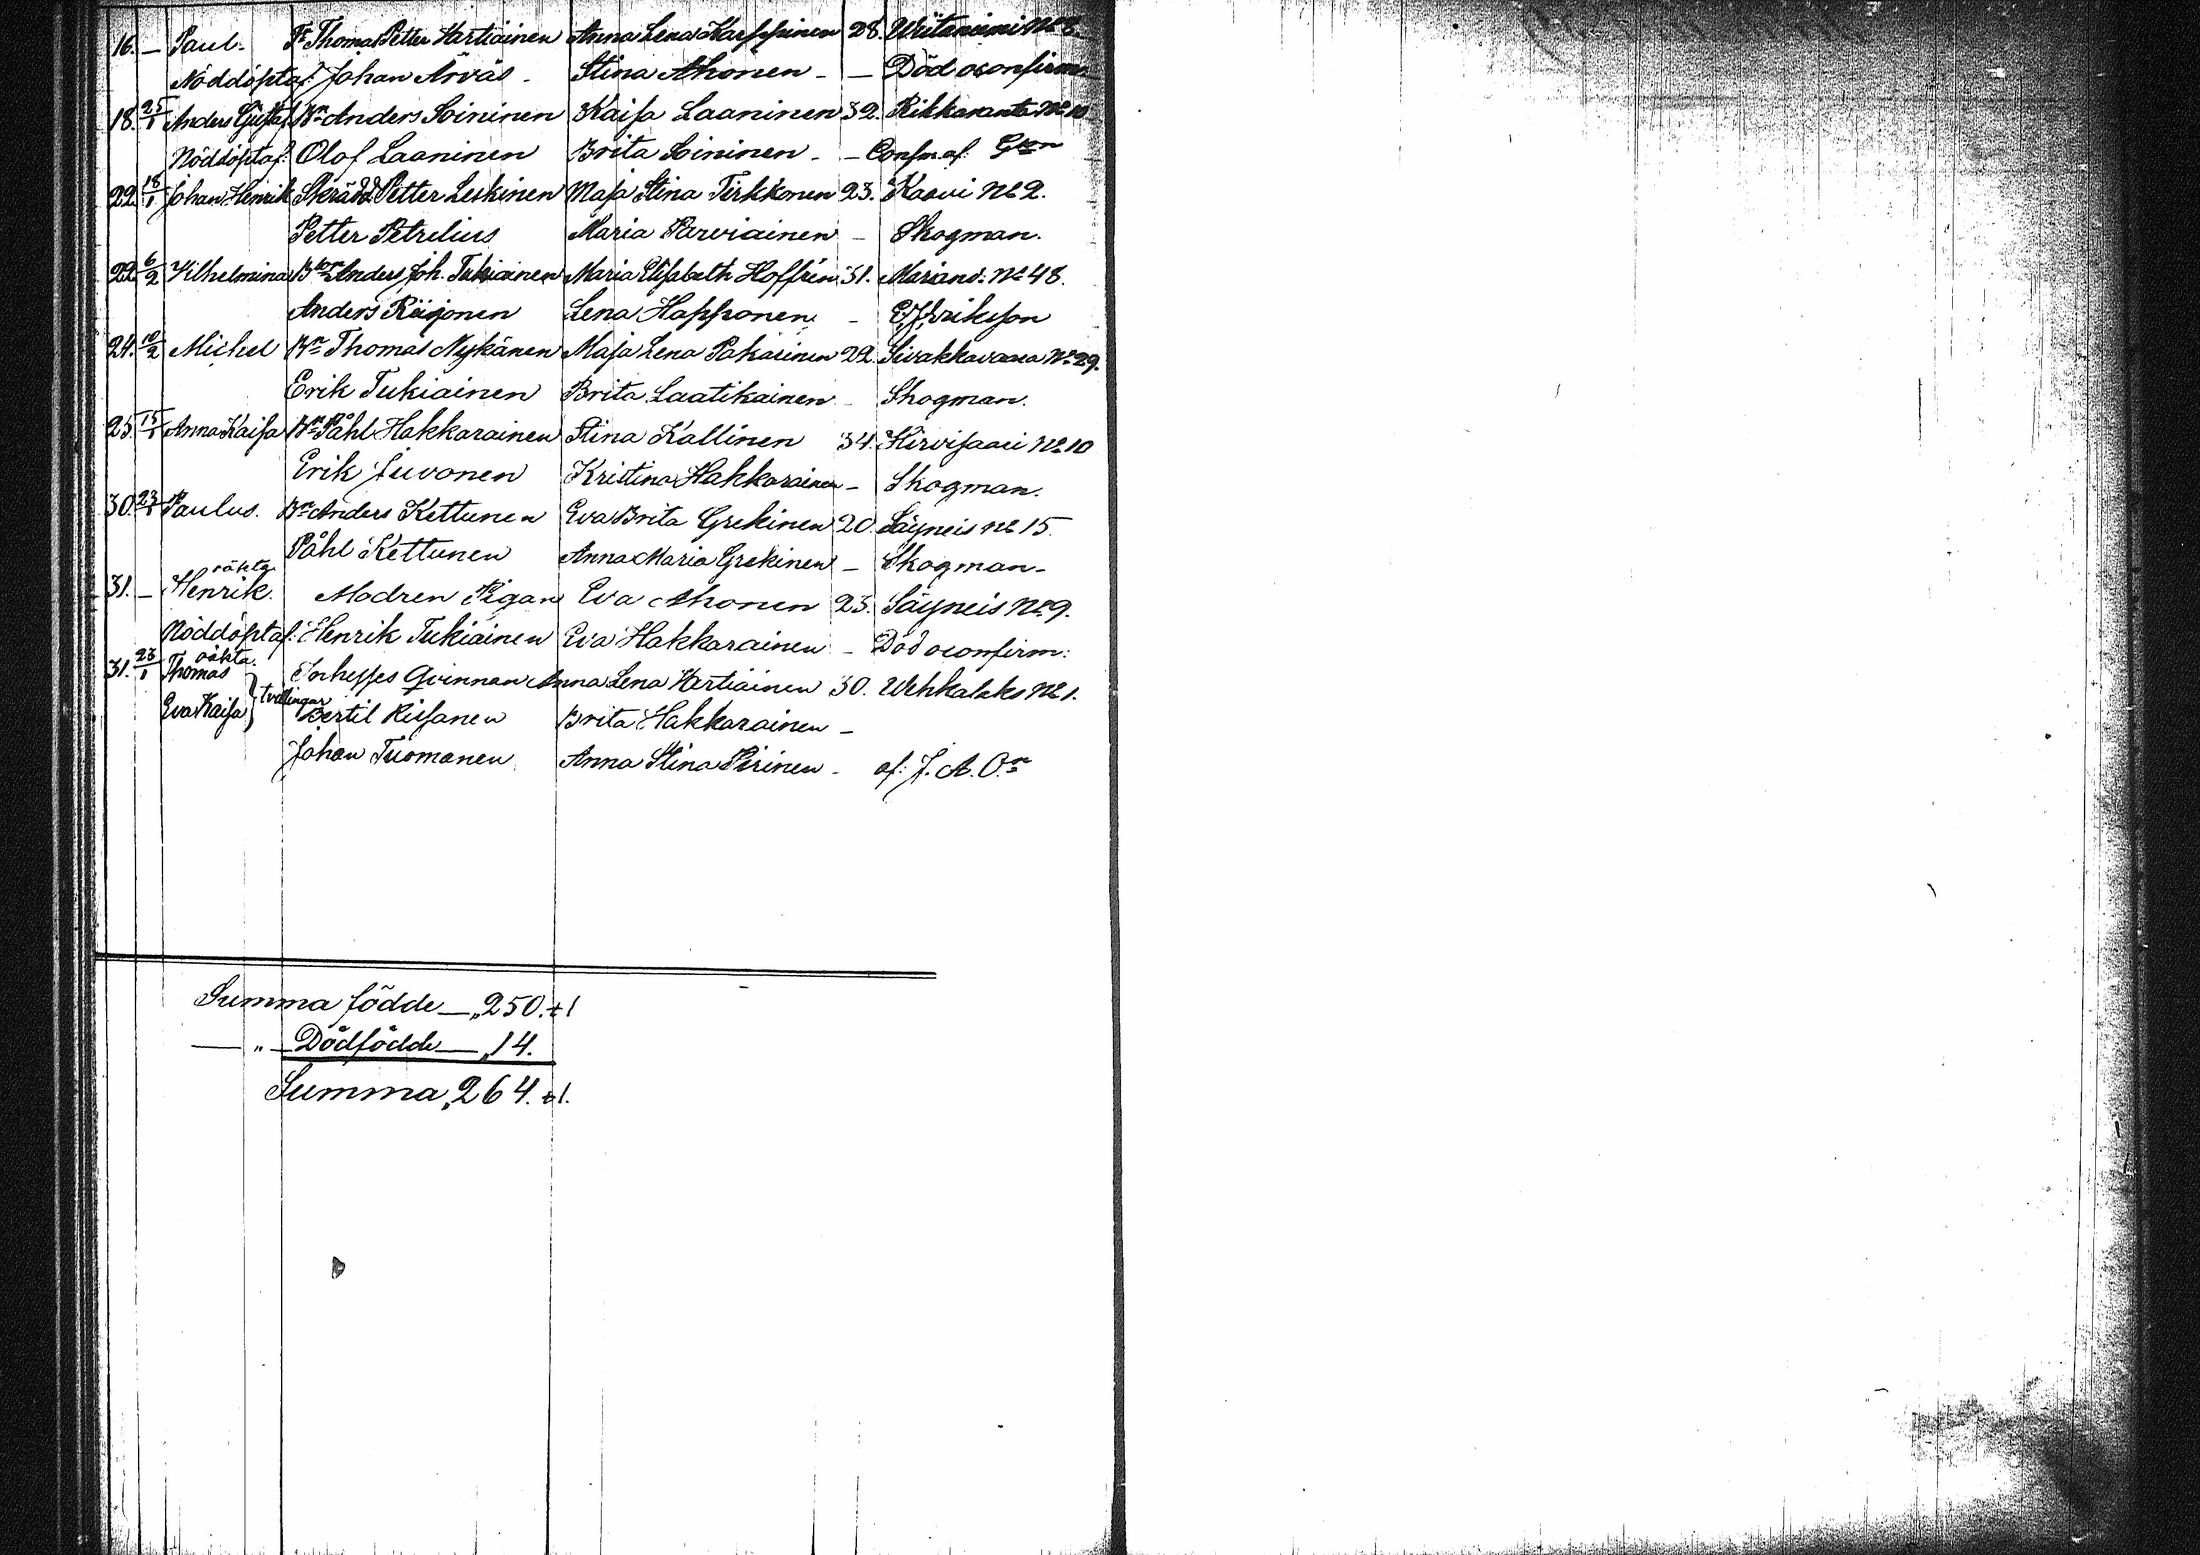 16. — Paul. Thomas Petter Hertiäinen Anna Lena Karppinen 28. Niitaniemi No 8.
Nöddöpt af Johan Arväs - Stina Ahonen - — Död oconfirm:
18. 25/1 Anders Gustaf Bn Anders Soininen Kaisa Laaninen 32. Rikkaranta No 10
Nöddöpt af: Olof Laaninen Brita Soininen - — Confm af:
22. 18/1 Johan Henrik Skrädd Petter Leskinen Maja Stina Tirkkonen 23. Kaavi No 2.
Petter Petrelius Maria Parviainen - Skogman.
22. 6/2 Vilhelmina Anders Joh. Tukiainen Maria Elisabeth Hoffrén 31. Mariand: No 48.
Anders Räijonen Lena Happonen -
24. 10/2 Michel Bn Thomas Nykänen Maja Lena Pakarinen 22. Sivakkavaara No 29.
Erik Tukiainen Brita Laatikainen - Skogman.
25. 15/1 Anna Kaisa Bn Påhl Hakkarainen Stina Kallinen 34. Hirvisaari No 10
Erik Juvonen Kristina Hakkarainen - Skogman.
30. 23/1 Paulus. Bn Anders Kettunen Eva Brita Grekinen 20. Säyneis No 15.
Påhl Kettunen Anna Maria Grekinen - Skogman -
31. — oäkta Henrik. Modren Pigan Eva Ahonen 23. Säyneis No 9.
Nöddöpt af: Henrik Tukiainen Eva Hakkarainen - Död oconfirm:
31. 23/1 oäkta. Thomas Inhesses Qvinnan Anna Lena Hertiäinen 30. Wehkalaks No 1.
Eva Kaisa } tvillingar Bertil Rissanen Brita Hakkarainen -
Johan Tuomanen Anna Stina Pirinen - af: J. A. On
Summa födde — „250. + 1
— „ — Dödfödde — „14.
Summa „264. + 1.